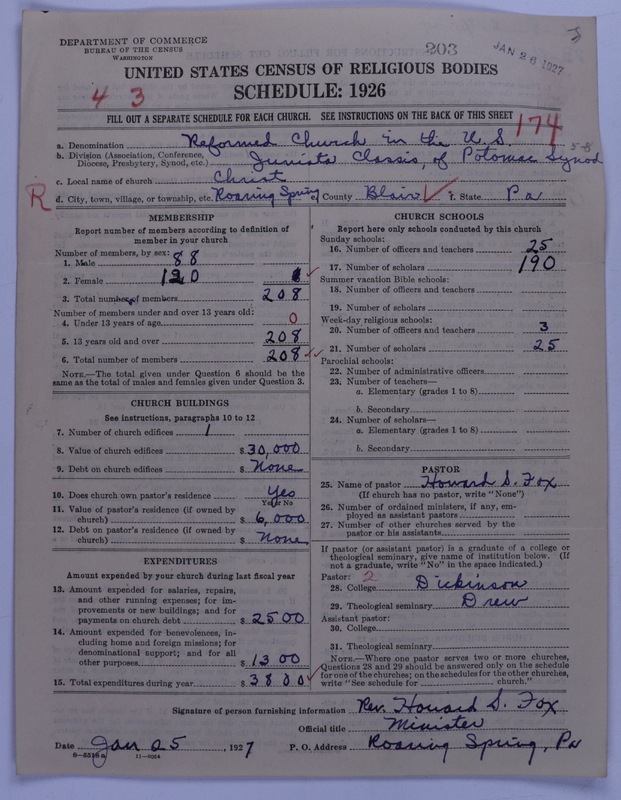 DEPARTMENT OF COMMERCE
BUREAU OF THE CENSUS
WASHINGTON
203
JAN 26 1927
UNITED STATES CENSUS OF RELIGIOUS BODIES
SCHEDULE: 1926
4 3
FILL OUT A SEPARATE SCHEDULE FOR EACH CHURCH. SEE INSTRUCTIONS ON THE BACK OF THIS SHEET
174
a. Denomination Reformed Church in the U.S.
b. Division (Association, Conference, Diocese, Presbytery, Synod, etc.) Juniata Classis, of Potomac Synod 5-8
c. Local name of church Christ
R d. City, town, village, or township, etc. Roaring Spring e. County Blair f. State Pa
MEMBERSHIP
Report number of members according to definition of
member in your church
Number of members, by sex:
1. Male 88
2. Female 120
3. Total number of members 208
Number of members under and over 13 years old:
4. Under 13 years of age 0
5. 13 years old and over 208
6. Total number of members 208
NOTE.—The total given under Question 6 should be
same as the total of males and females given under Question 3.
CHURCH BUILDINGS
See instructions, paragraphs 10 to 12
7. Number of church edifices 1
8. Value of church edifices $ 30,000
9. Debt on church edifices $ None
10. Does church own pastor's residence Yes
Yes or No
11. Value of pastor's residence (if owned by
church) $ 6,000
12. Debt on pastor's residence (if owned by
church) $ None
EXPENDITURES
Amount expended by your church during last fiscal year
13. Amount expended for salaries, repairs,
and other running expenses; for im-
provements or new buildings; and for
payments on church debt $ 2500
14. Amount expended for benevolences, in-
cluding home and foreign missions; for
denominational support; and for all
other purposes $ 1300
15. Total expenditures during year $ 3800
CHURCH SCHOOLS
Report here only schools conducted by this church
Sunday schools:
16. Number of officers and teachers 25
17. Number of scholars 190
Summer vacation Bible schools:
18. Number of officers and teachers
19. Number of scholars
Week-day religious schools:
20. Number of officers and teachers 3
21. Number of scholars 25
Parochial schools:
22. Number of administrative officers
23. Number of teachers—
a. Elementary (grades 1 to 8)
b. Secondary
24. Number of scholars—
a. Elementary (grades 1 to 8)
b. Secondary
PASTOR
25. Name of pastor Howard S. Fox
(If church has no pastor, write "None")
26. Number of ordained ministers, if any, em-
ployed as assistant pastors
27. Number of other churches served by the
pastor or his assistants
If pastor (or assistant pastor) is a graduate of a college or
theological seminary, give name of institution below. (If
not a graduate, write "No" in the space indicated.)
Pastor: 2
28. College Dickinson
29. Theological seminary Drew
Assistant pastor:
30. College
31. Theological seminary
NOTE.—Where one pastor serves two or more churches,
Questions 28 and 29 should be answered only on the schedule
for one of the churches; on the schedules for the other churches,
write "See schedule for church."
Signature of person furnishing information Rev. Howard S. Fox
Official title Minister
Date Jan 25, 1927 P. O. Address Roaring Spring, Pa
8-5518a 11-9064